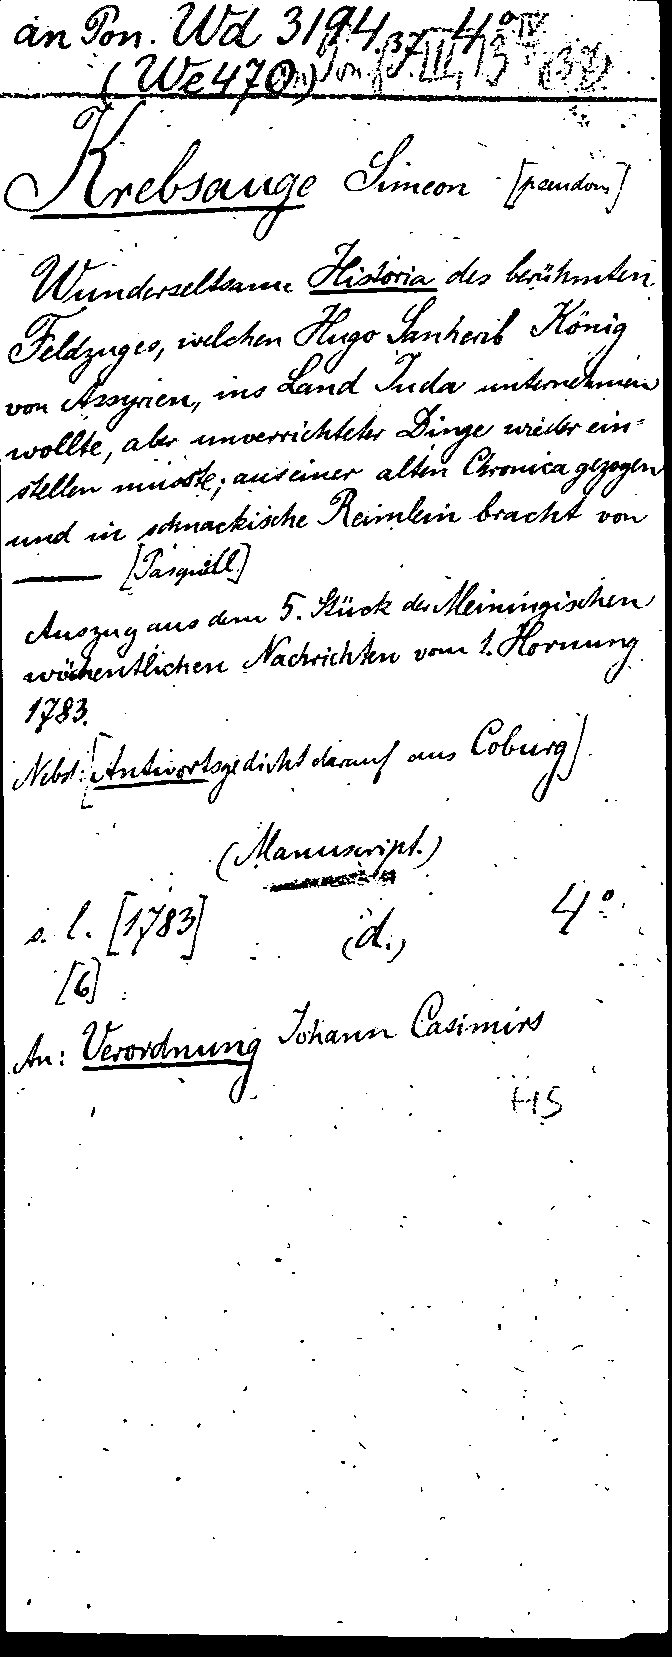 an Pon. Wd 3194, 4°
(We 470)
Krebsauge Simeon [pseudon.]
Wunderseltsame Historia des berühmten
Feldzuges, welchen Hugo Sanherib König
von Assyrien, ins Land Juda unternehmen
wollte, aber unverrichteter Dinge wieder ein-
stellen musste; aus einer alten Chronica gezogen
und in schnackische Reimlein bracht von
——— [Pasquill]
Auszug aus dem 5. Stück der Meiningischen
wöchentlichen Nachrichten vom 1. Hornung
1783.
Nebst: [Antwortsgedicht darauf aus Coburg].
(Manuscript.)
s. l. [1783] (d.) 4°.
[6]
An: Verordnung Johann Casimirs
HS